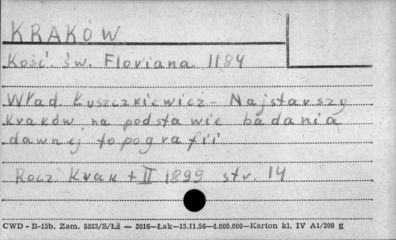 KRAKÓW
Kość. św. Floriana 1184
Wład. Łuszczkiewicz - Najstarszy
Kraków na podstawie badania
dawnej topografii
Rocz. Krak. t. II 1899 str. 14
CWD - B-15b. Zam. 5823/S/Łż — 2016—Łak—15.11.56—4.000.000—Karton kl. IV A1/200 g